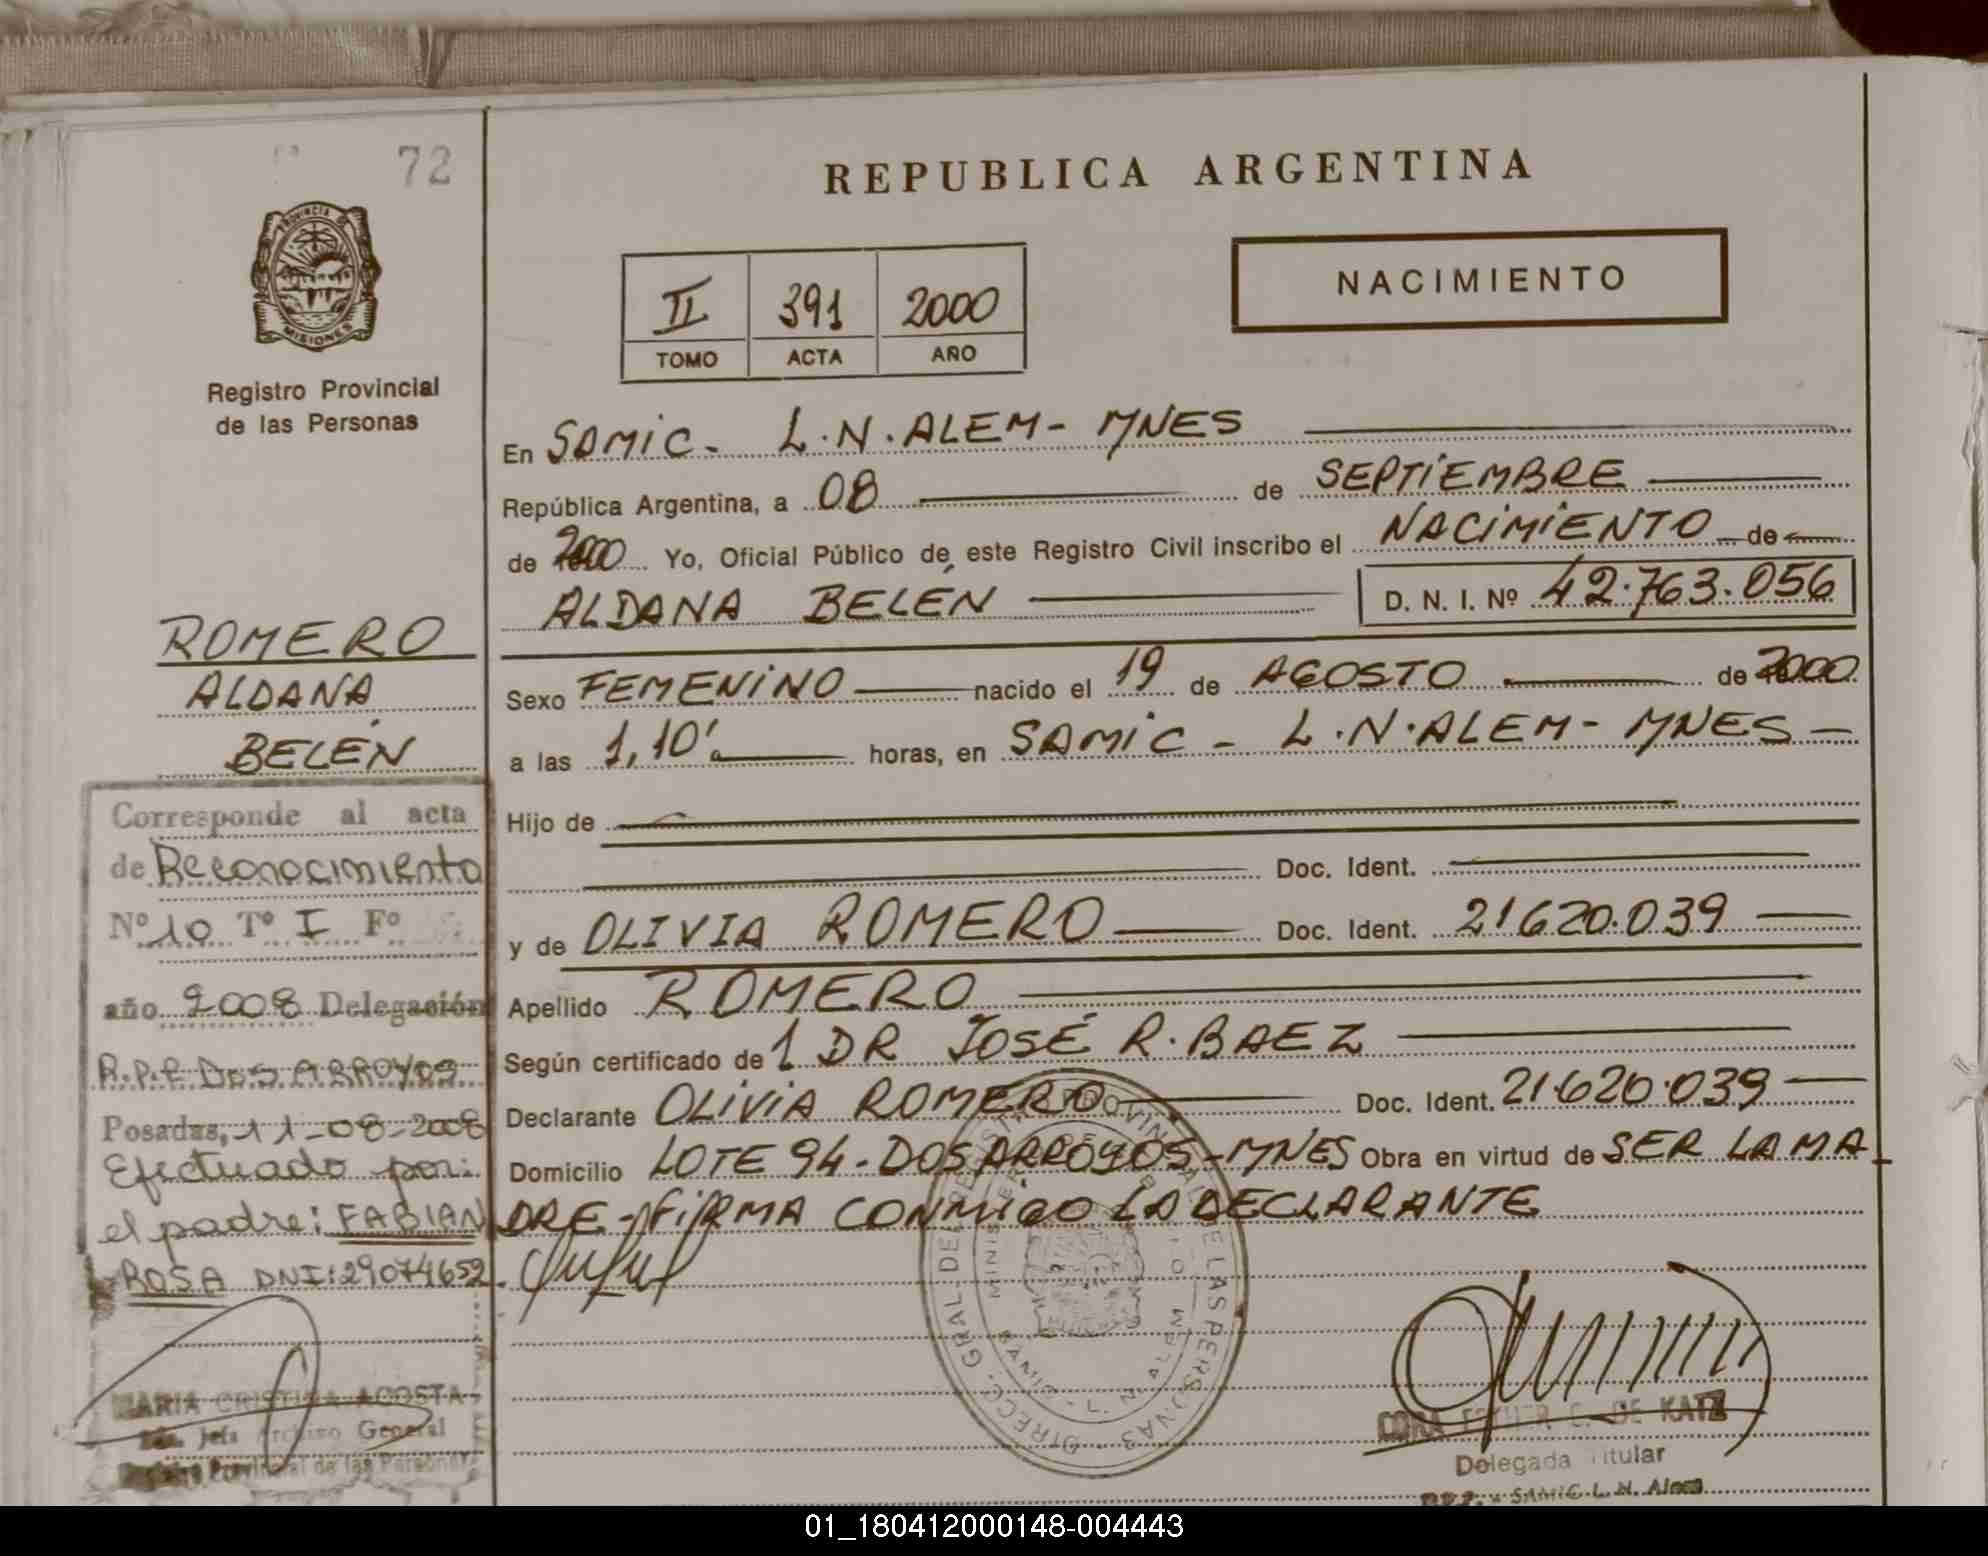 72
PROVINCIA DE
MISIONES
Registro Provincial
de las Personas
ROMERO
ALDANA
BELÉN
Corresponde al acta
de Reconocimiento
Nº 10 Tº I Fº
año 2008 Delegación
R.P.P. DOS ARROYOS
Posadas, 11-08-2008
Efectuado por:
el padre: FABIAN
ROSA DNI: 29074652
MARIA CRISTINA ACOSTA
Jefa Archivo General
Registro Provincial de las Personas
REPUBLICA ARGENTINA
II 391 2000
TOMO ACTA AÑO
NACIMIENTO
En SAMIC - L.N. ALEM - MNES
República Argentina, a 08 de SEPTIEMBRE
de 2000 Yo, Oficial Público de este Registro Civil inscribo el NACIMIENTO de
ALDANA BELÉN D. N. I. Nº 42.763.056
Sexo FEMENINO nacido el 19 de AGOSTO de 2000
a las 1,10' horas, en SAMIC - L.N. ALEM - MNES -
Hijo de
Doc. Ident.
y de OLIVIA ROMERO Doc. Ident. 21620.039
Apellido ROMERO
Según certificado de 1 DR JOSÉ R. BAEZ
Declarante OLIVIA ROMERO Doc. Ident. 21620.039
Domicilio LOTE 94 - DOS ARROYOS - MNES Obra en virtud de SER LA MA
DRE - FIRMA CONMIGO LA DECLARANTE
CORA ESTHER C. DE KATZ
Delegada Titular
SAMIC L. N. Alem
01_180412000148-004443